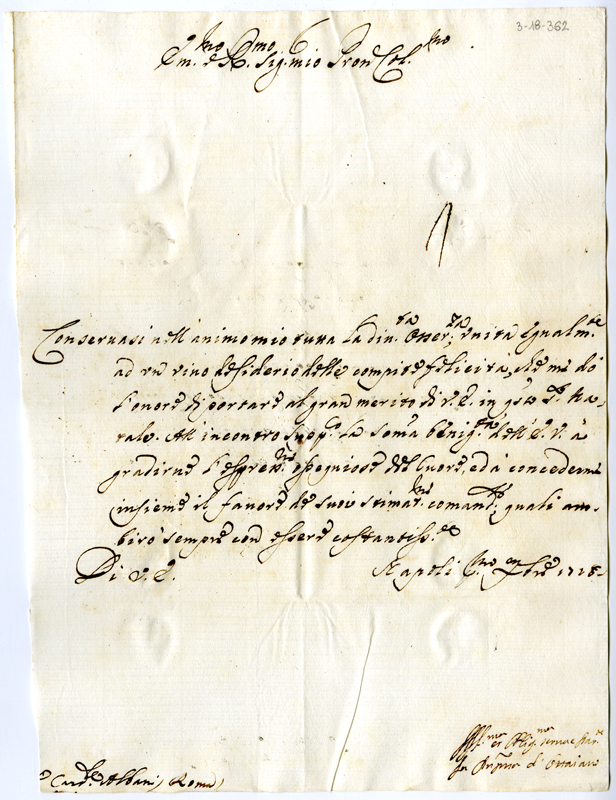 3-18-362
Em.mo e R.mo Sig. mio Pron Col.mo
Conseruasi nell'animo mio tutta la diu.ta Osser.za vnita egualm.te
ad vn viuo desiderio delle compite felicità, che mi dò
l'onore di portare al gran merito di V.E. in q.to S. Na=
tale. All'incontro supp.co la somma benig.tà dell'E.V. à
gradirne l'espress.ni ossequiose del Cuore, ed à concedermi
insieme il fauore de suoi stimat.mi comand.i quali am=
birò sempre con essere costantiss.te
Di V.E. Napoli P.mo Xbre 1718
Aff.mo et Oblig.mo
d'Ottaiano
Card.le Albani Roma